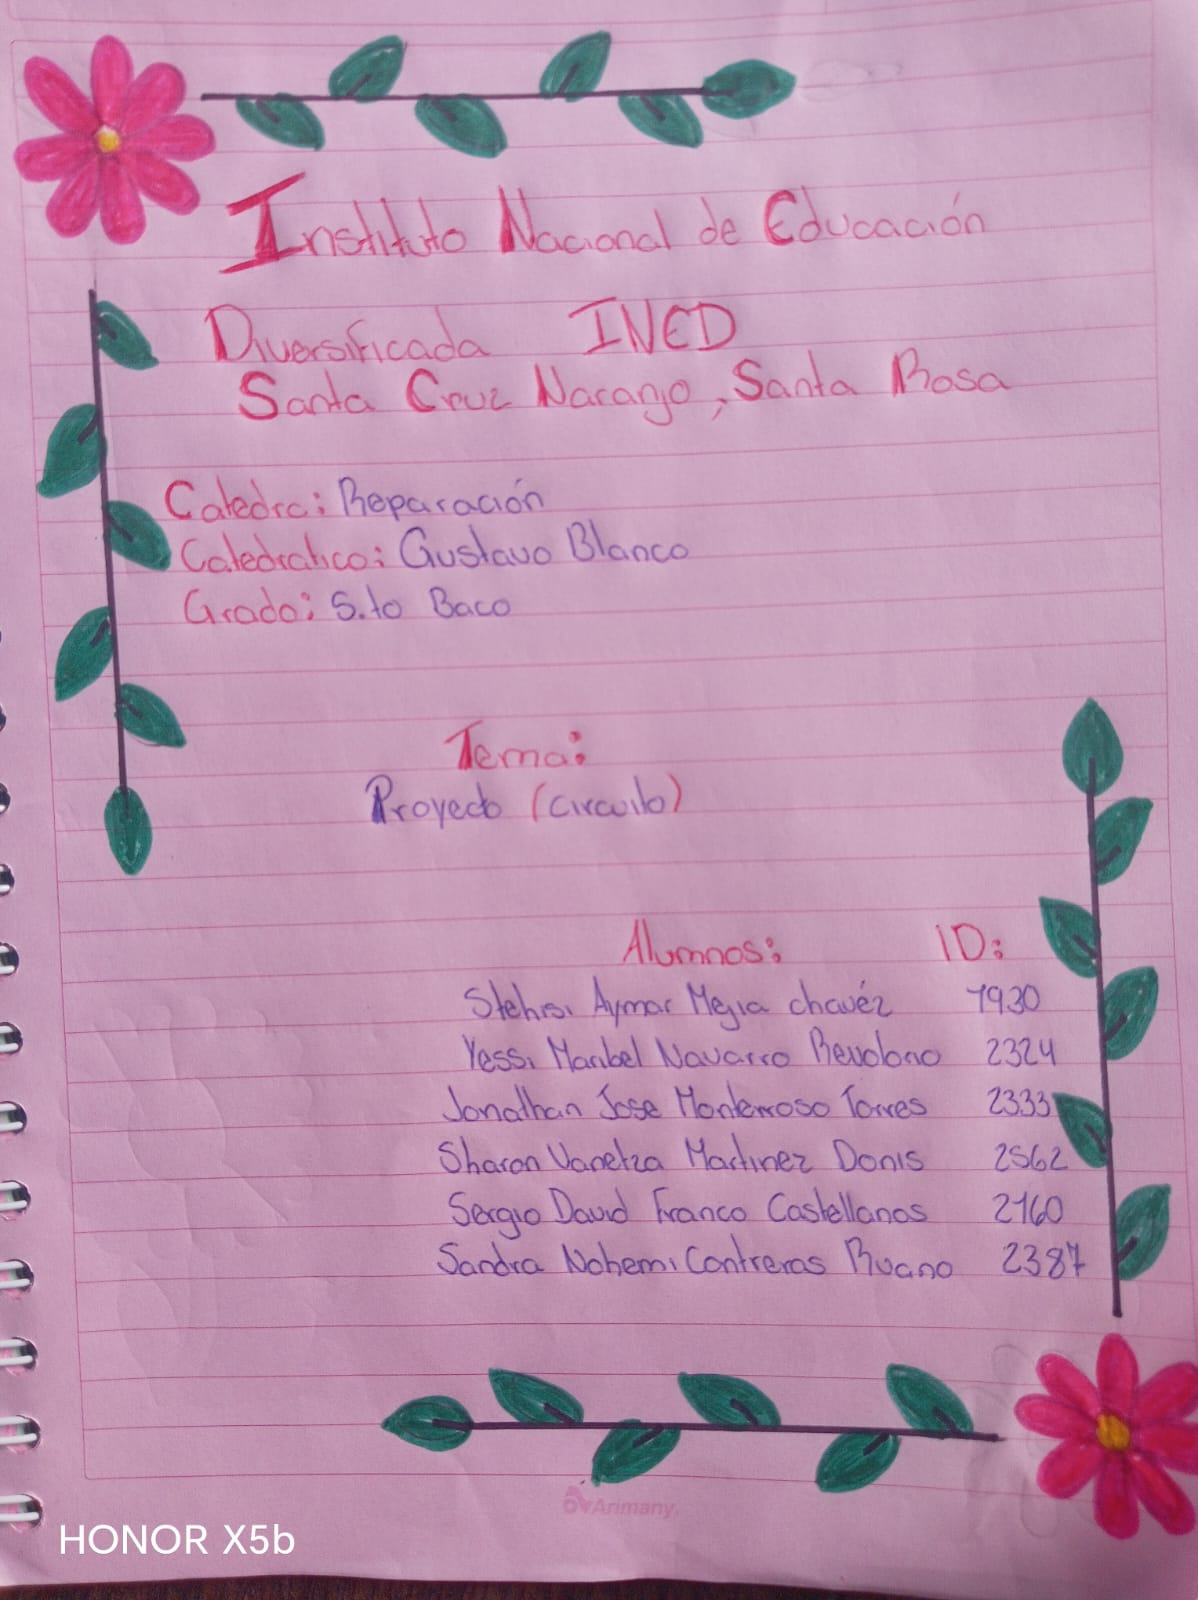 Instituto Nacional de Educación
Diversificada INED
Santa Cruz Naranjo, Santa Rosa
Catedra: Reparación
Catedratico: Gustavo Blanco
Grado: 5.to Baco
Tema:
Proyecto (circuito)
Alumnos: ID:
Aymar Mejia chavéz 1930
Yessi Maribel Navarro Revolorio 2324
Jonathan Jose Monterroso Torres 2333
Sharon Vanetza Martinez Donis 2562
Sergio David Franco Castellanos 2160
Sandra Nohemi Contreras Ruano 2387
Arimany.
HONOR X5b